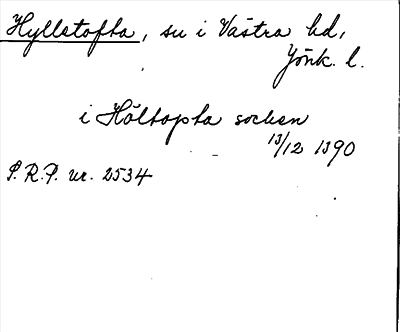 Hyllstofta, su i Västra hd,
Jönk. l.
i Höltopta socken
13/12 1390
S.R.P. nr. 2534